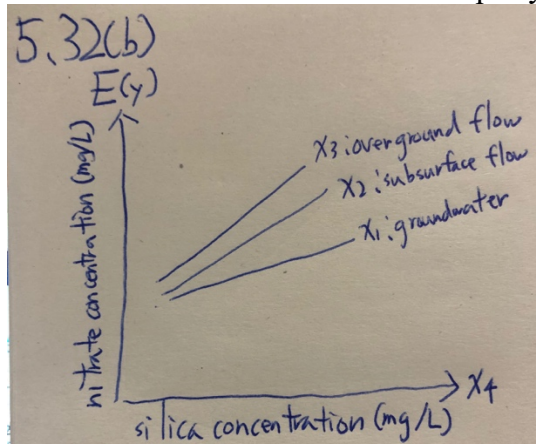 5.32(b)
E(y)
nitrate concentration (mg/L)
x3:overground flow
x2:subsurface flow
x1:groundwater
x4
silica concentration (mg/L)